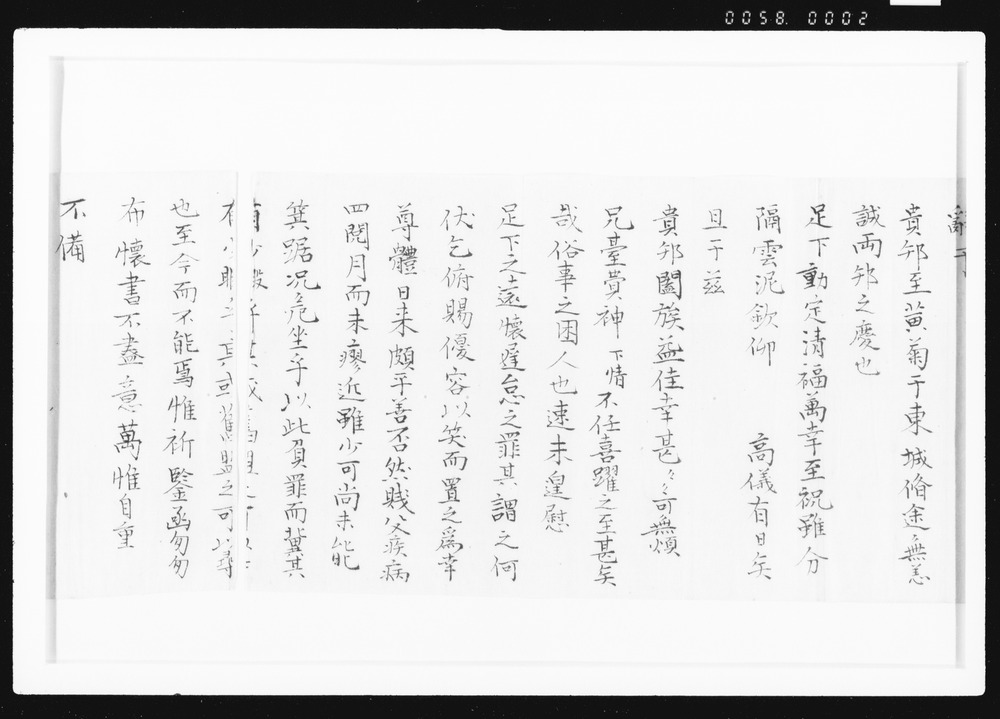 0058. 0002
貴邦至黄菊于東城脩途無恙
誠両邦之慶也
足下動定清福萬幸至祝雖分
隔雲泥欽仰 高儀有日矣
且于茲
貴邦闔族益佳幸甚々々可無煩
兄臺貴神下情不任喜躍之至甚矣
哉俗事之困人也速未遑慰
足下之遠懐遅怠之罪其謂之何
伏乞俯賜優容以笑而置之為幸
尊體日来頗平善否然賤父疾病
四閲月而未瘳近雖少可尚未能
箕踞况危坐乎以此負罪而冀其
有少
舊盟之可尋
也至今而不能焉惟祈鑒函匆匆
布懐書不盡意萬惟自重
不備